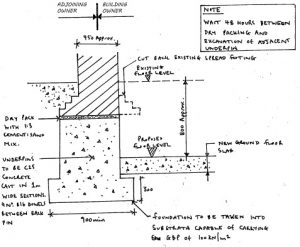 ADJOINING
OWNER
BUILDING
OWNER
NOTE
WAIT 48 HOURS BETWEEN
DRY PACKING AND
EXCAVATION OF ADJACENT
UNDERPIN
450 Approx.
CUT BACK EXISTING SPREAD FOOTING
EXISTING
FLOOR LEVEL
800 Approx.
DRY PACK
WITH 1:3
CEMENT:SAND
MIX.
PROPOSED
FLOOR LEVEL
NEW GROUND FLOOR
SLAB
UNDERPINS
TO BE C35
CONCRETE
CAST IN 1m
WIDE SECTIONS.
DOWELS
BETWEEN EACH
PIN
300
900 min
FOUNDATION TO BE TAKEN INTO
SUBSTRATA CAPABLE OF CARRYING
GBP OF 100KN/m²